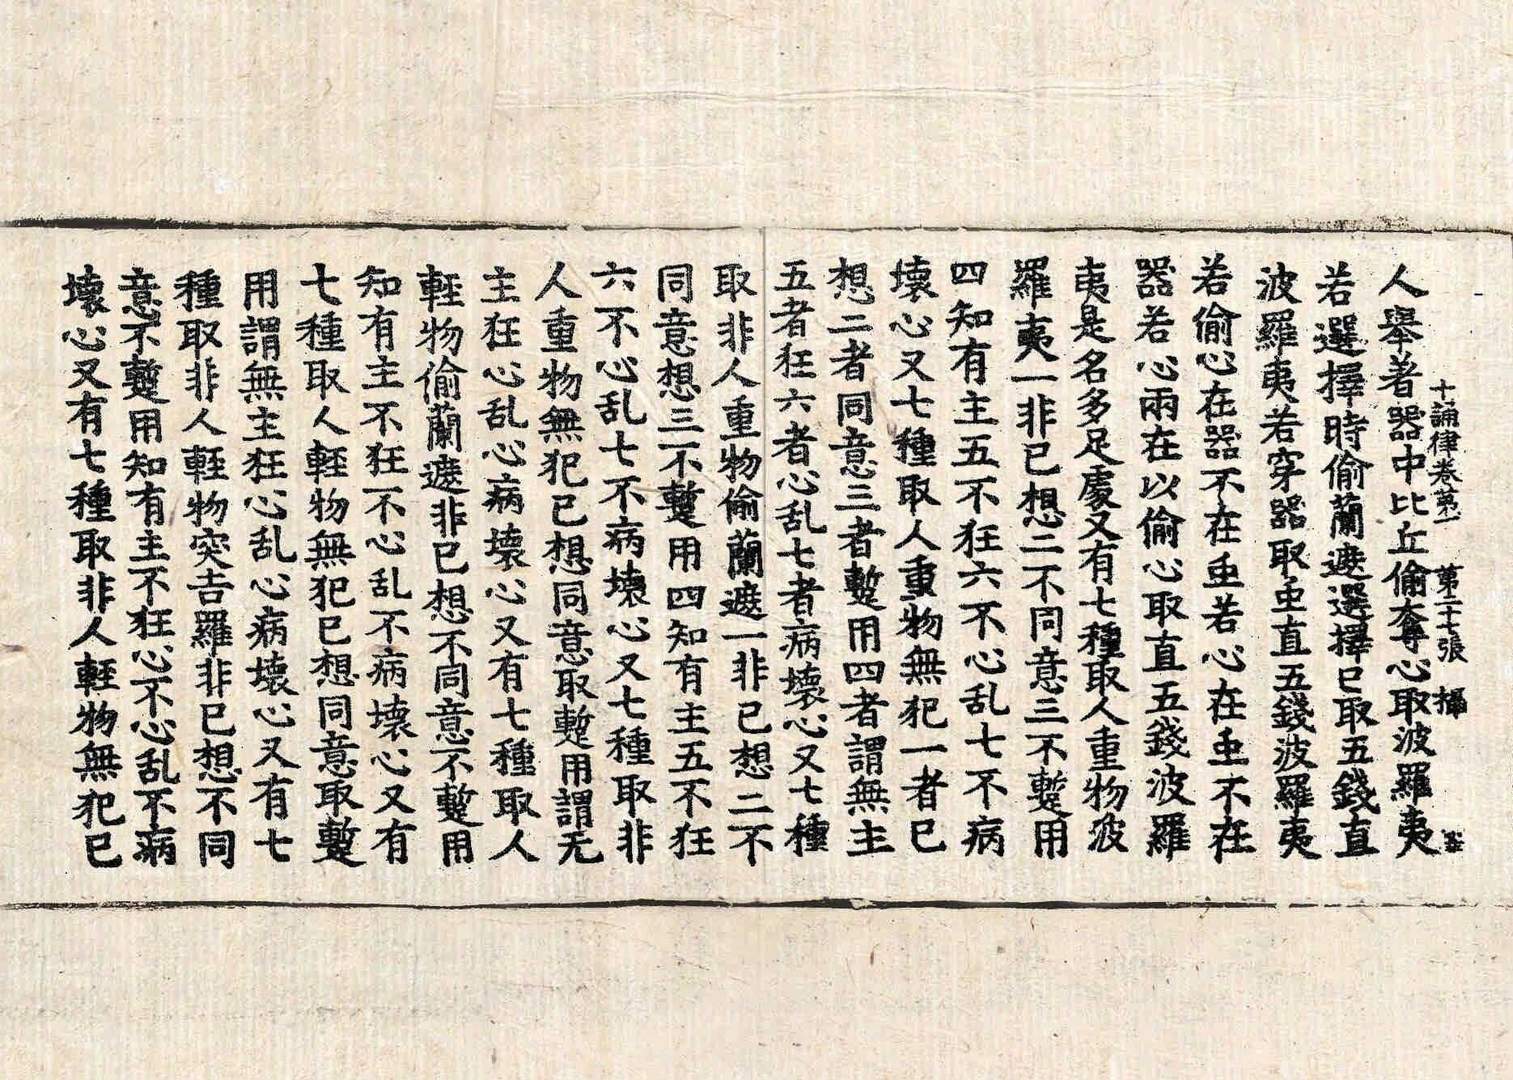 十誦律卷第一　第二十七張　攝
人舉著器中比丘偷奪心取波羅夷
若選擇時偷蘭遮選擇已取五錢直
波羅夷若穿器取虫直五錢波羅夷
若偷心在器不在虫若心在虫不在
器若心兩在以偷心取直五錢波羅
夷是名多足處又有七種取人重物波
羅夷一非已想二不同意三不蹔用
四知有主五不狂六不心乱七不病
壞心又七種取人重物無犯一者已
想二者同意三者蹔用四者謂無主
五者狂六者心乱七者病壞心又七種
取非人重物偷蘭遮一非已想二不
同意想三不蹔用四知有主五不狂
六不心乱七不病壞心又七種取非
人重物無犯已想同意取蹔用謂无
主狂心乱心病壞心又有七種取人
輊物偷蘭遮非已想不同意不蹔用
知有主不狂不心乱不病壞心又有
七種取人輊物無犯已想同意取蹔
用謂無主狂心乱心病壞心又有七
種取非人輊物突吉羅非已想不同
意不蹔用知有主不狂心不心乱不病
壞心又有七種取非人輊物無犯已